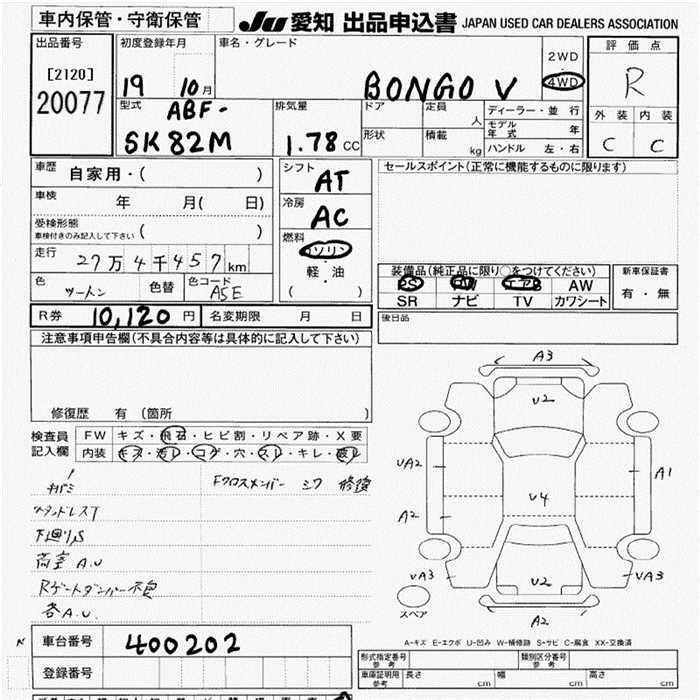 車内保管・守衛保管
JU 愛知 出品申込書 JAPAN USED CAR DEALERS ASSOCIATION
出品番号
[2120]
20077
初度登録年月
19 10月
車名・グレード
BONGO V
2WD
4WD
評価点
R
外装 内装
C C
型式
ABF-
SK82M
排気量
1.78 CC
ドア
形状
定員
人
積載
kg
ディーラー・並行
モデル年式 年
ハンドル 左・右
車歴
自家用・( )
車検
年 月( 日)
受検形態
車検付きのみ記入して下さい ( )
走行
27万4千457km
色
ツートン
色替
色コード
A5E
シフト
AT
冷房
AC
燃料
ガソリン
軽・油
( )
セールスポイント(正常に機能するものに限ります)
装備品(純正品に限り○をつけてください)
PS PW エアB AW
SR ナビ TV カワシート
新車保証書
有・無
後日品
R券 10,120 円
名変期限 月 日
注意事項申告欄(不具合内容等は具体的に記入して下さい)
修復歴 有 (箇所 )
検査員
記入欄
FW キズ・飛石・ヒビ割・リペア跡・X要
内装 キズ・汚レ・コゲ・穴・スレ・キレ・破レ
Fクロスメンバー シワ 修復
下廻りS
荷室A.U
Rゲートダンパー不良
各A.U.
車台番号 400202
登録番号
A3
U2
UA2
A1
A2
U4
UA3
U2
UA3
スペア
A2
A-キズ E-エクボ U-凹み W-補修跡 S-サビ C-腐食 XX-交換済
形式指定番号
参考
類別区分番号
参考
車庫証明用
参考
長さ cm 幅 cm 高さ cm